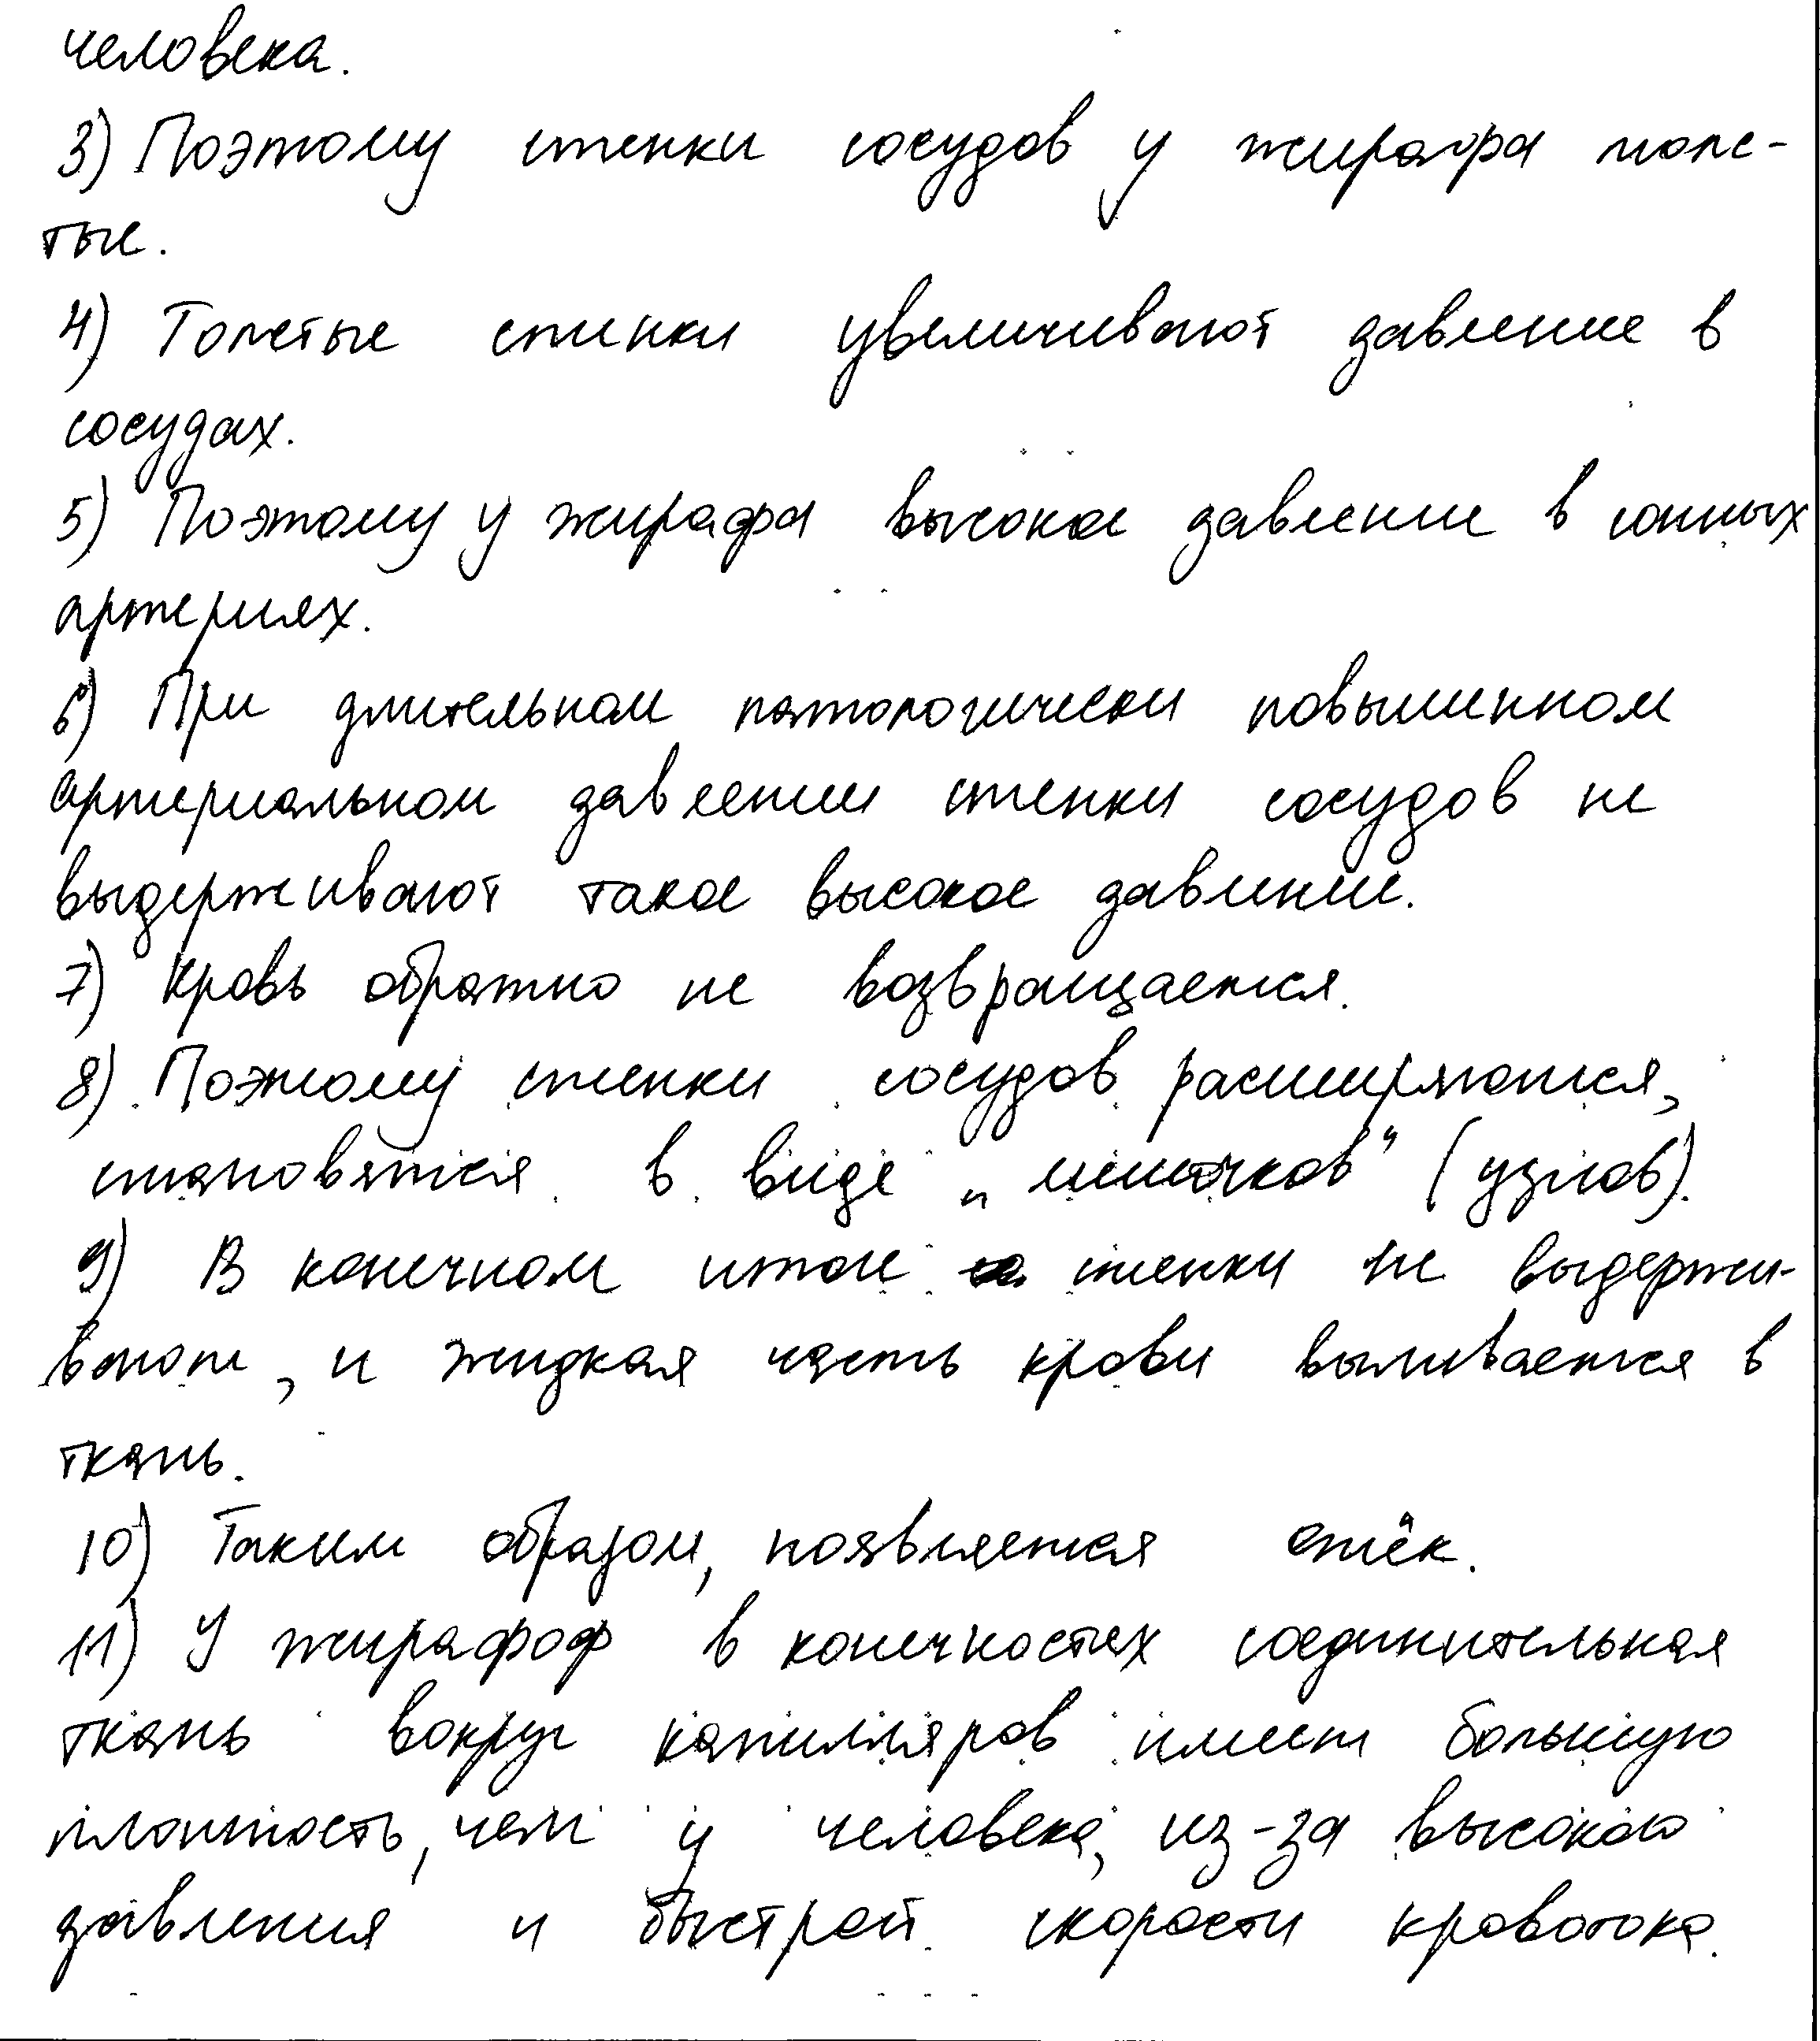 человека.
3) Поэтому стенки сосудов у жирафа толс-
тые.
4) Толстые стенки увеличивают давление в
сосудах.
5) Поэтому у жирафа высокое давление в сонных
артериях.
6) При длительном патологически повышенном
артериальном давлении стенки сосудов не
выдерживают такое высокое давление.
7) Кровь обратно не возвращается.
8) Поэтому стенки сосудов расширяются,
становятся в виде „мешочков" (узлов).
9) В конечном итоге стенки не выдержи-
вают, и жидкая часть крови выливается в
ткань.
10) Таким образом, появляется отёк.
11) У жирафоф в конечностях соединительная
ткань вокруг капилляров имеет большую
плотность, чем у человека, из-за высокого
давления и быстрой скорости кровотока.